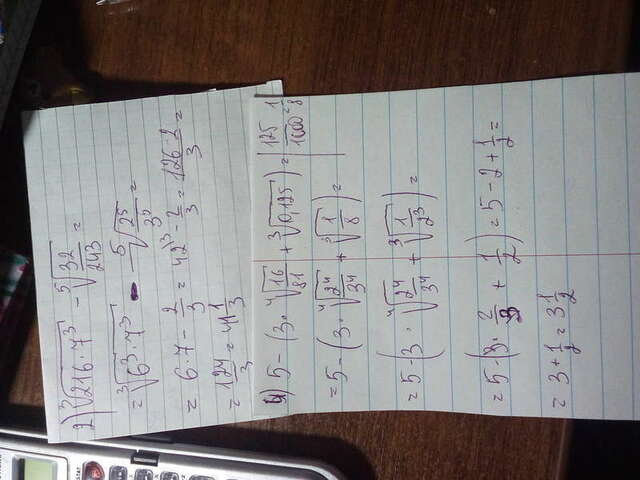 2) ∛(216·7³) - ⁵√(32/243) =
= ∛(6³·7³) - ⁵√(2⁵/3⁵) =
= 6·7 - 2/3 = 42 - 2/3 = (126-2)/3 =
= 124/3 = 41 1/3
4) 5 - (3·⁴√(16/81) + ∛0,125) = | 125/1000 = 1/8
= 5 - (3·⁴√(2⁴/3⁴) + ∛(1/8)) =
= 5 - (3·⁴√(2⁴/3⁴) + ∛(1/2³)) =
= 5 - (3·2/3 + 1/2) = 5 - 2 + 1/2 =
= 3 + 1/2 = 3 1/2